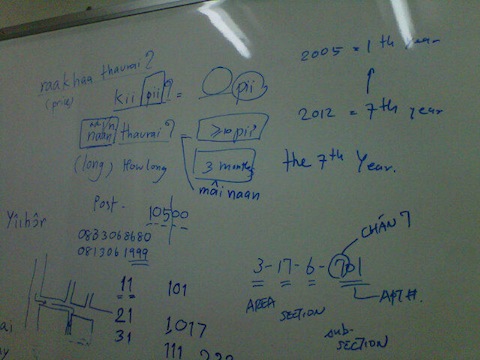 raakhaa thaurai?
(price)
kii pii? = pii
2005 = 1 th Year
2012 = 7 th year
naan thaurai? = ≥10 pii?
(long) How long
3 months
the 7th Year.
mâi naan
Post. 10500
Yîihôr
0833068680
0813061999
CHÁN 7
11 101
3-17-6-701
AREA
SECTION
APT#.
21
31 1017
SUB-
SECTION
111